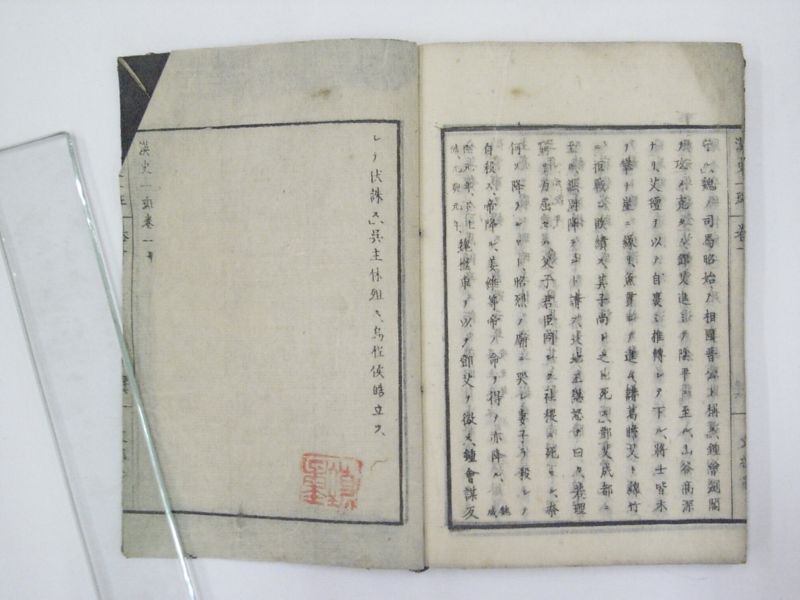 漢史一斑 巻一
守ル、魏ノ司馬昭始テ相國晋公ト稱ス、鍾會劔閣
ヲ攻テ克タス、鄧艾進テ陰平ニ至ル、山谷高深
ナリ、艾氊ヲ以テ自裹ミ推轉シテ下ル、將士皆木
ヲ攀チ崖ニ縁リ魚貫シテ進ム、諸葛瞻艾ト綿竹
ニ戰テ敗績ス、其子尚ト之ニ死ス、鄧艾成都ニ
至ル、譙周降ヲ請フ、北地王諶怒テ曰ク、若理
窮リ力屈セハ父子君臣同シク社稷ニ死スヘシ、奈
何ソ降ラント、昭烈ノ廟ニ哭シ妻子ヲ殺シテ
自殺ス、帝降ル、姜維等帝ノ命ヲ得テ亦降ル、
檻車ヲ以テ鄧艾ヲ徴ス、鍾會謀反
シテ伏誅ス、呉主休殂ス、烏程侯皓立ツ、
漢史一斑巻一